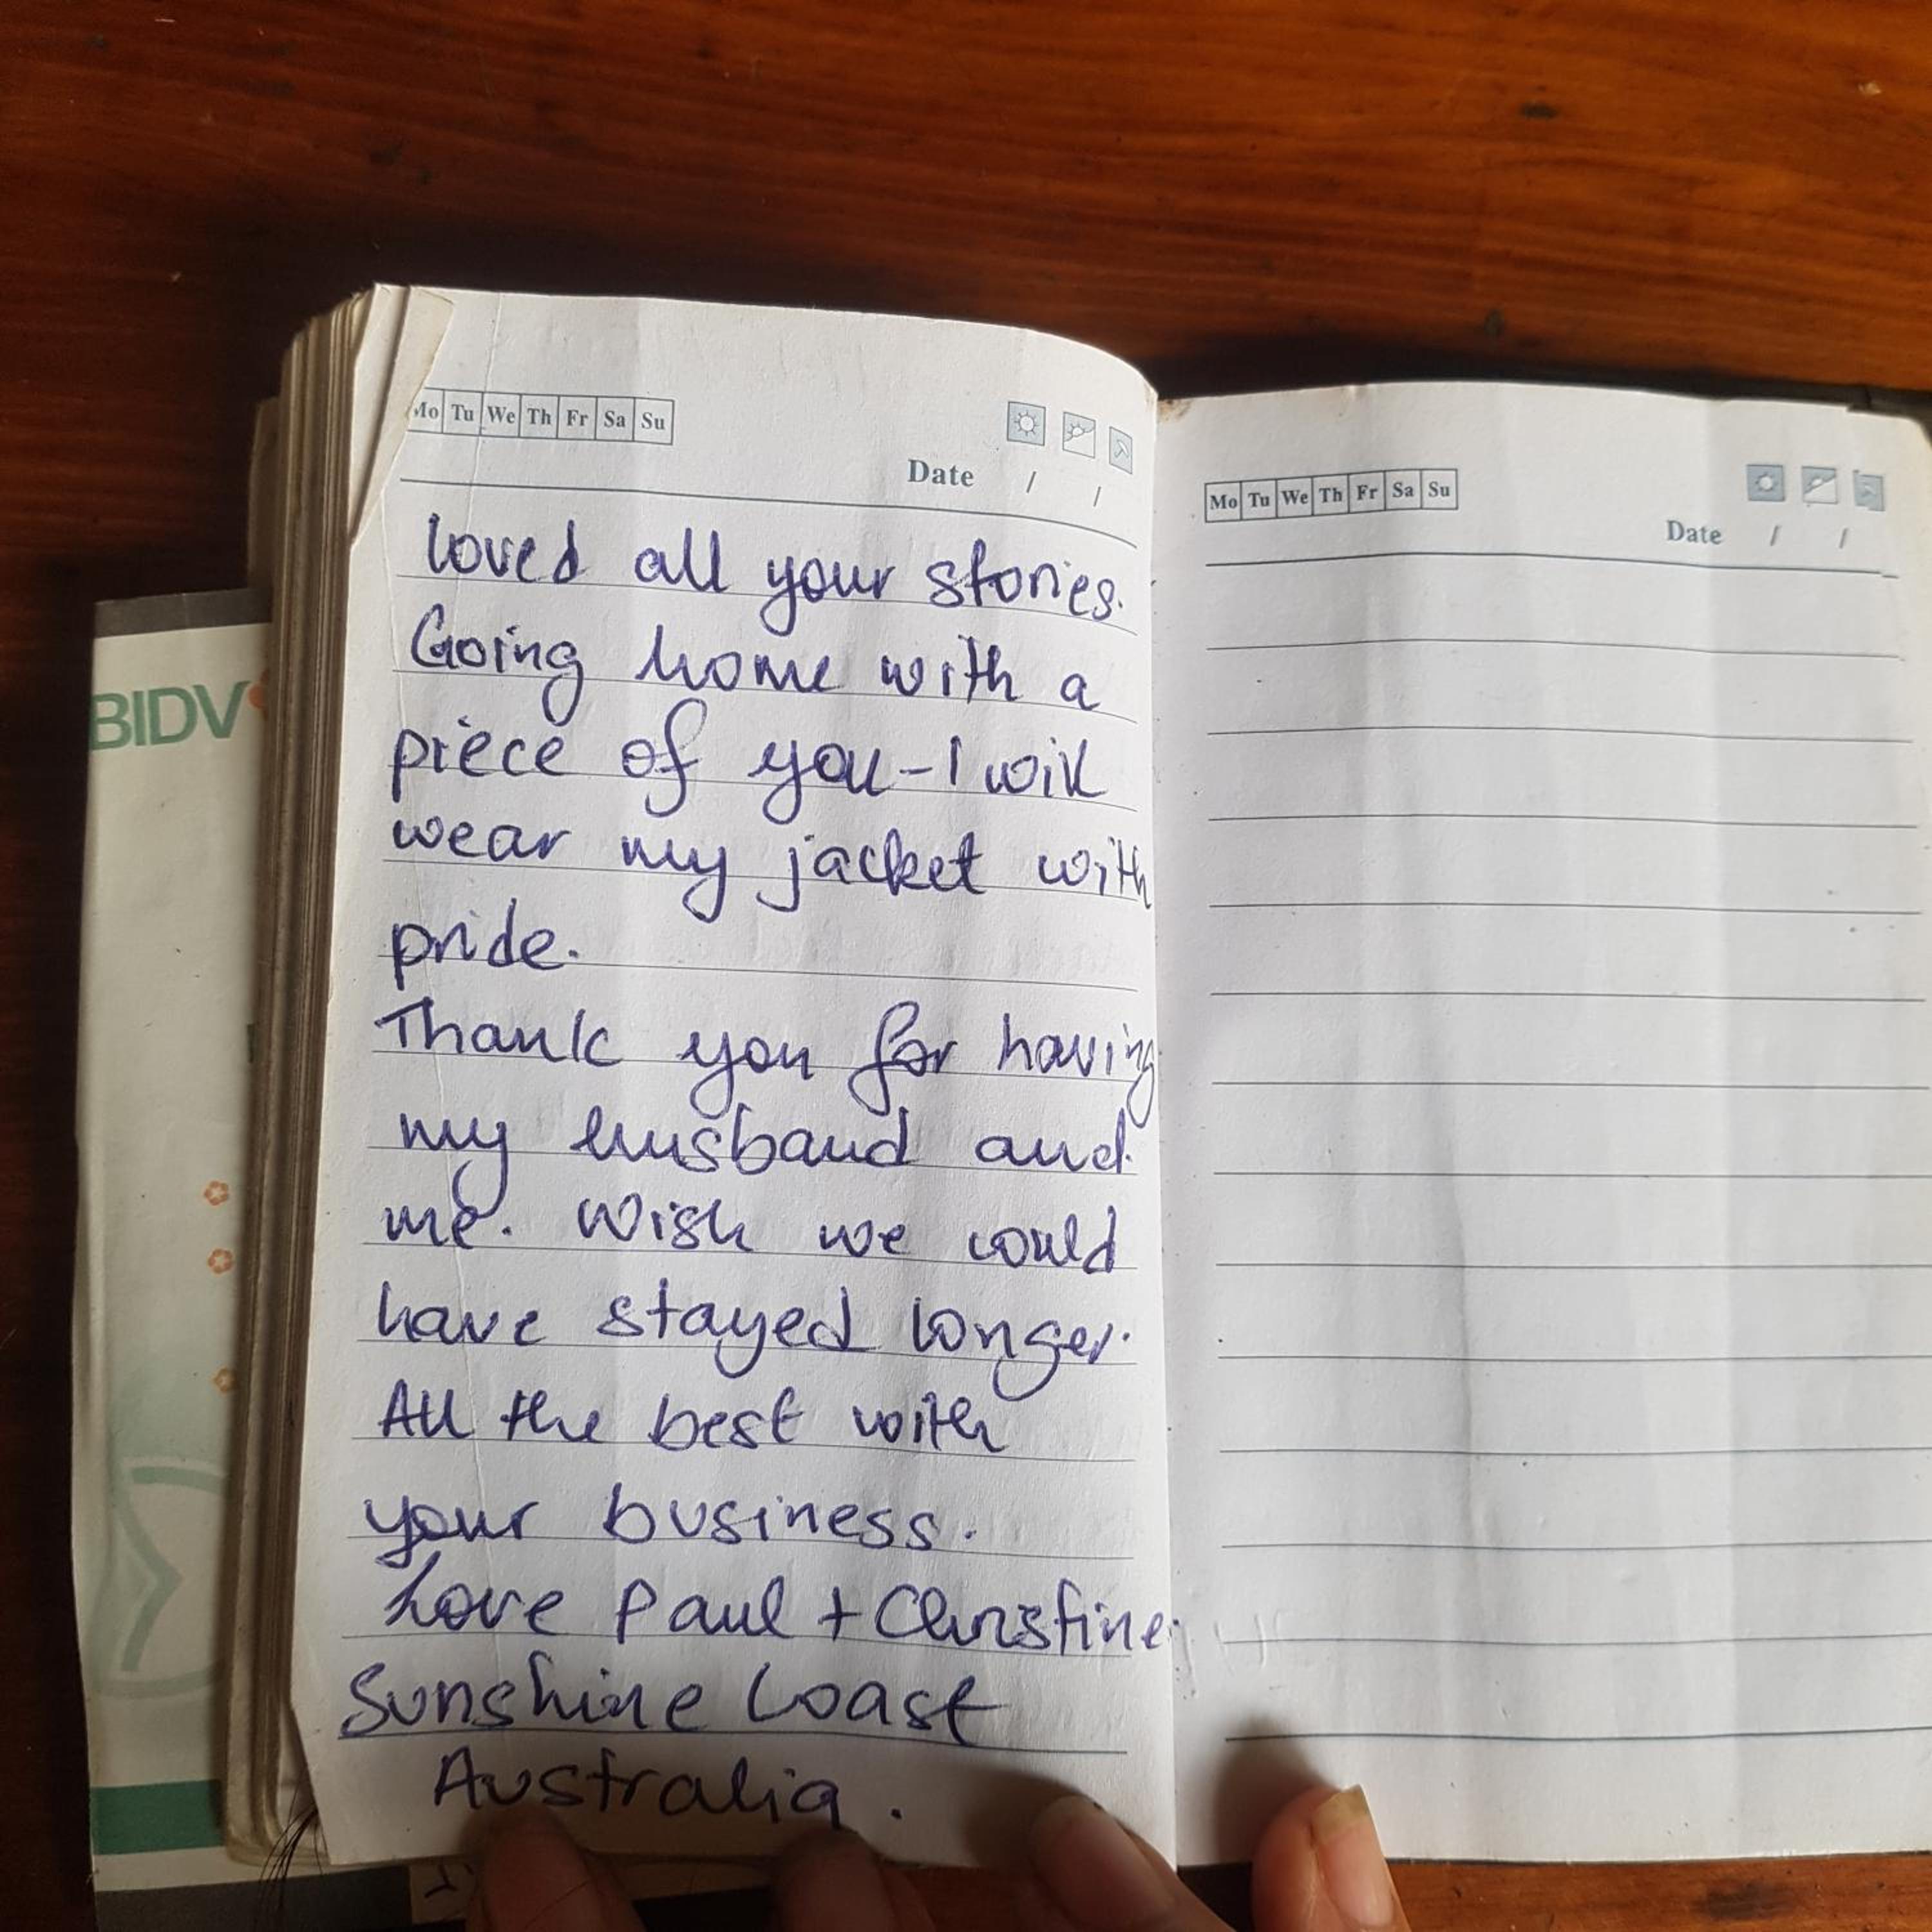 BIDV
Mo Tu We Th Fr Sa Su
Date / /
loved all your stories.
Going home with a
piece of you - I will
wear my jacket with
pride.
Thank you for having
my husband and
me. Wish we could
have stayed longer.
All the best with
your business.
Love Paul + Christine.
Sunshine Coast
Australia.
Mo Tu We Th Fr Sa Su
Date / /